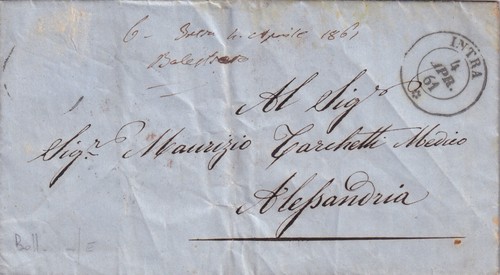 6 - Intra 4. Aprile 1861
INTRA
4
APR.
61
Al Sigr
Sigr Maurizio Tarchetti Medico
Alessandria
Boll.